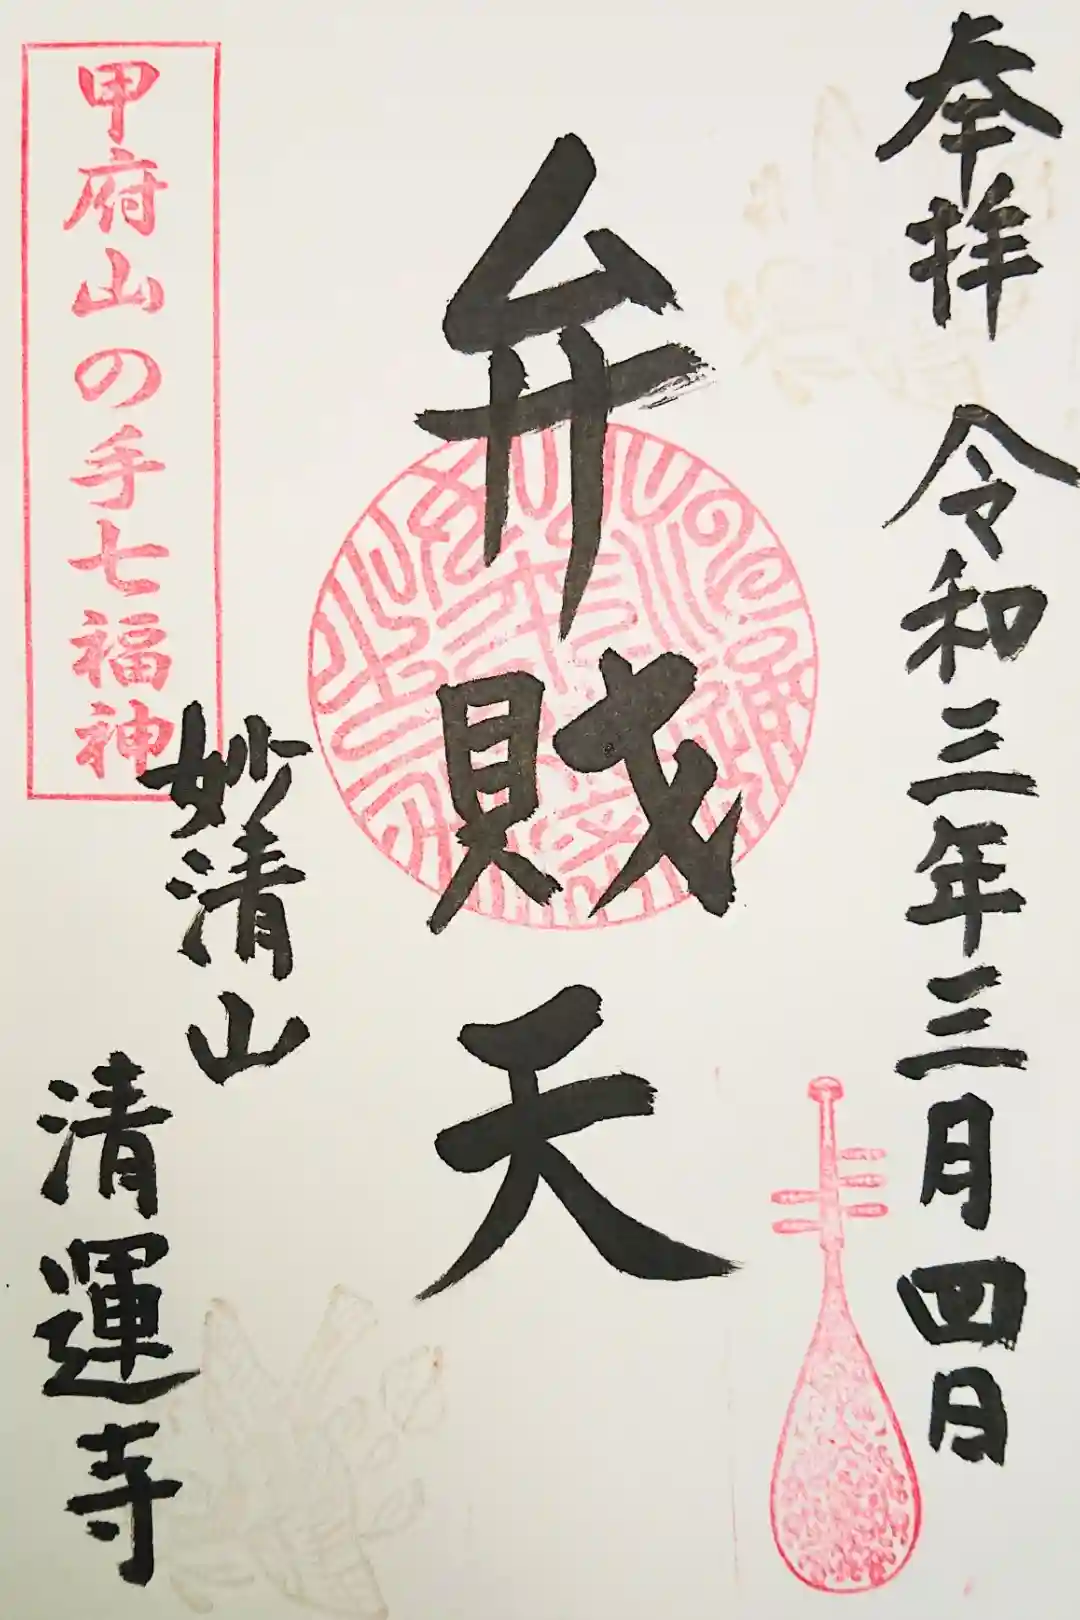 奉拝 令和三年三月四日
弁財天
甲府山の手七福神
妙清山
清運寺